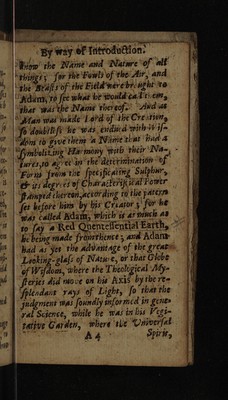 By way of Introduction.
know the Name and Nature of all
things; for the Fowls of the Air, and
the Beasts of the Field were brought to
Adam, to see what he would call them,
that was the Name thereof. And as
Man was made Lord of the Creation,
so doubtless he was endued with Wis-
dom to give them a Name that had a
symbolizing Harmony with their Na-
tures, to agree in the determination of
Form from the specificating Sulphur,
& its degrees of Characteristical Power
stamped thereon, according to the pattern
set before him by his Creator; for he
was called Adam, which is as much as
to say a Red Quentessential Earth,
he being made from thence; and Adam
had as yet the advantage of the great
Looking-glass of Nature, or that Globe
of Wisdom, where the Theological My-
steries did move on his Axis by the re-
splendant rays of Light, so that his
judgment was soundly informed in gene-
ral Science, while he was in his Vegi-
tative Garden, where the Universal
A 4 Spirit,